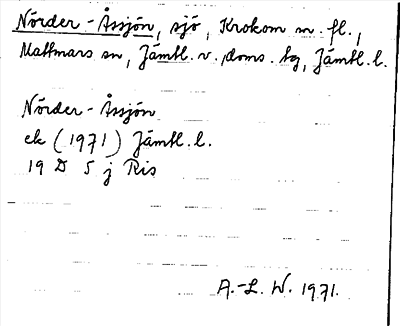 Nörder-Åssjön, sjö, Krokom m. fl.,
Mattmars sn, Jämtl. v. doms. tg, Jämtl. l.
Nörder-Åssjön
ek (1971) Jämtl. l.
19 D 5 j Ris
A.-L. W. 1971.